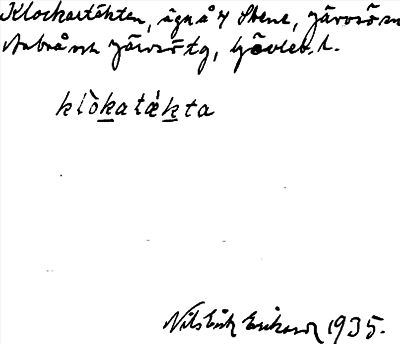 Klockartäkten, ägna å 4 Stene, Järvsö sn
Arbrå och Järvsö tg, Gävleb. l.
klòkatæ̀kta
Nils Erik Eriksson 1935.